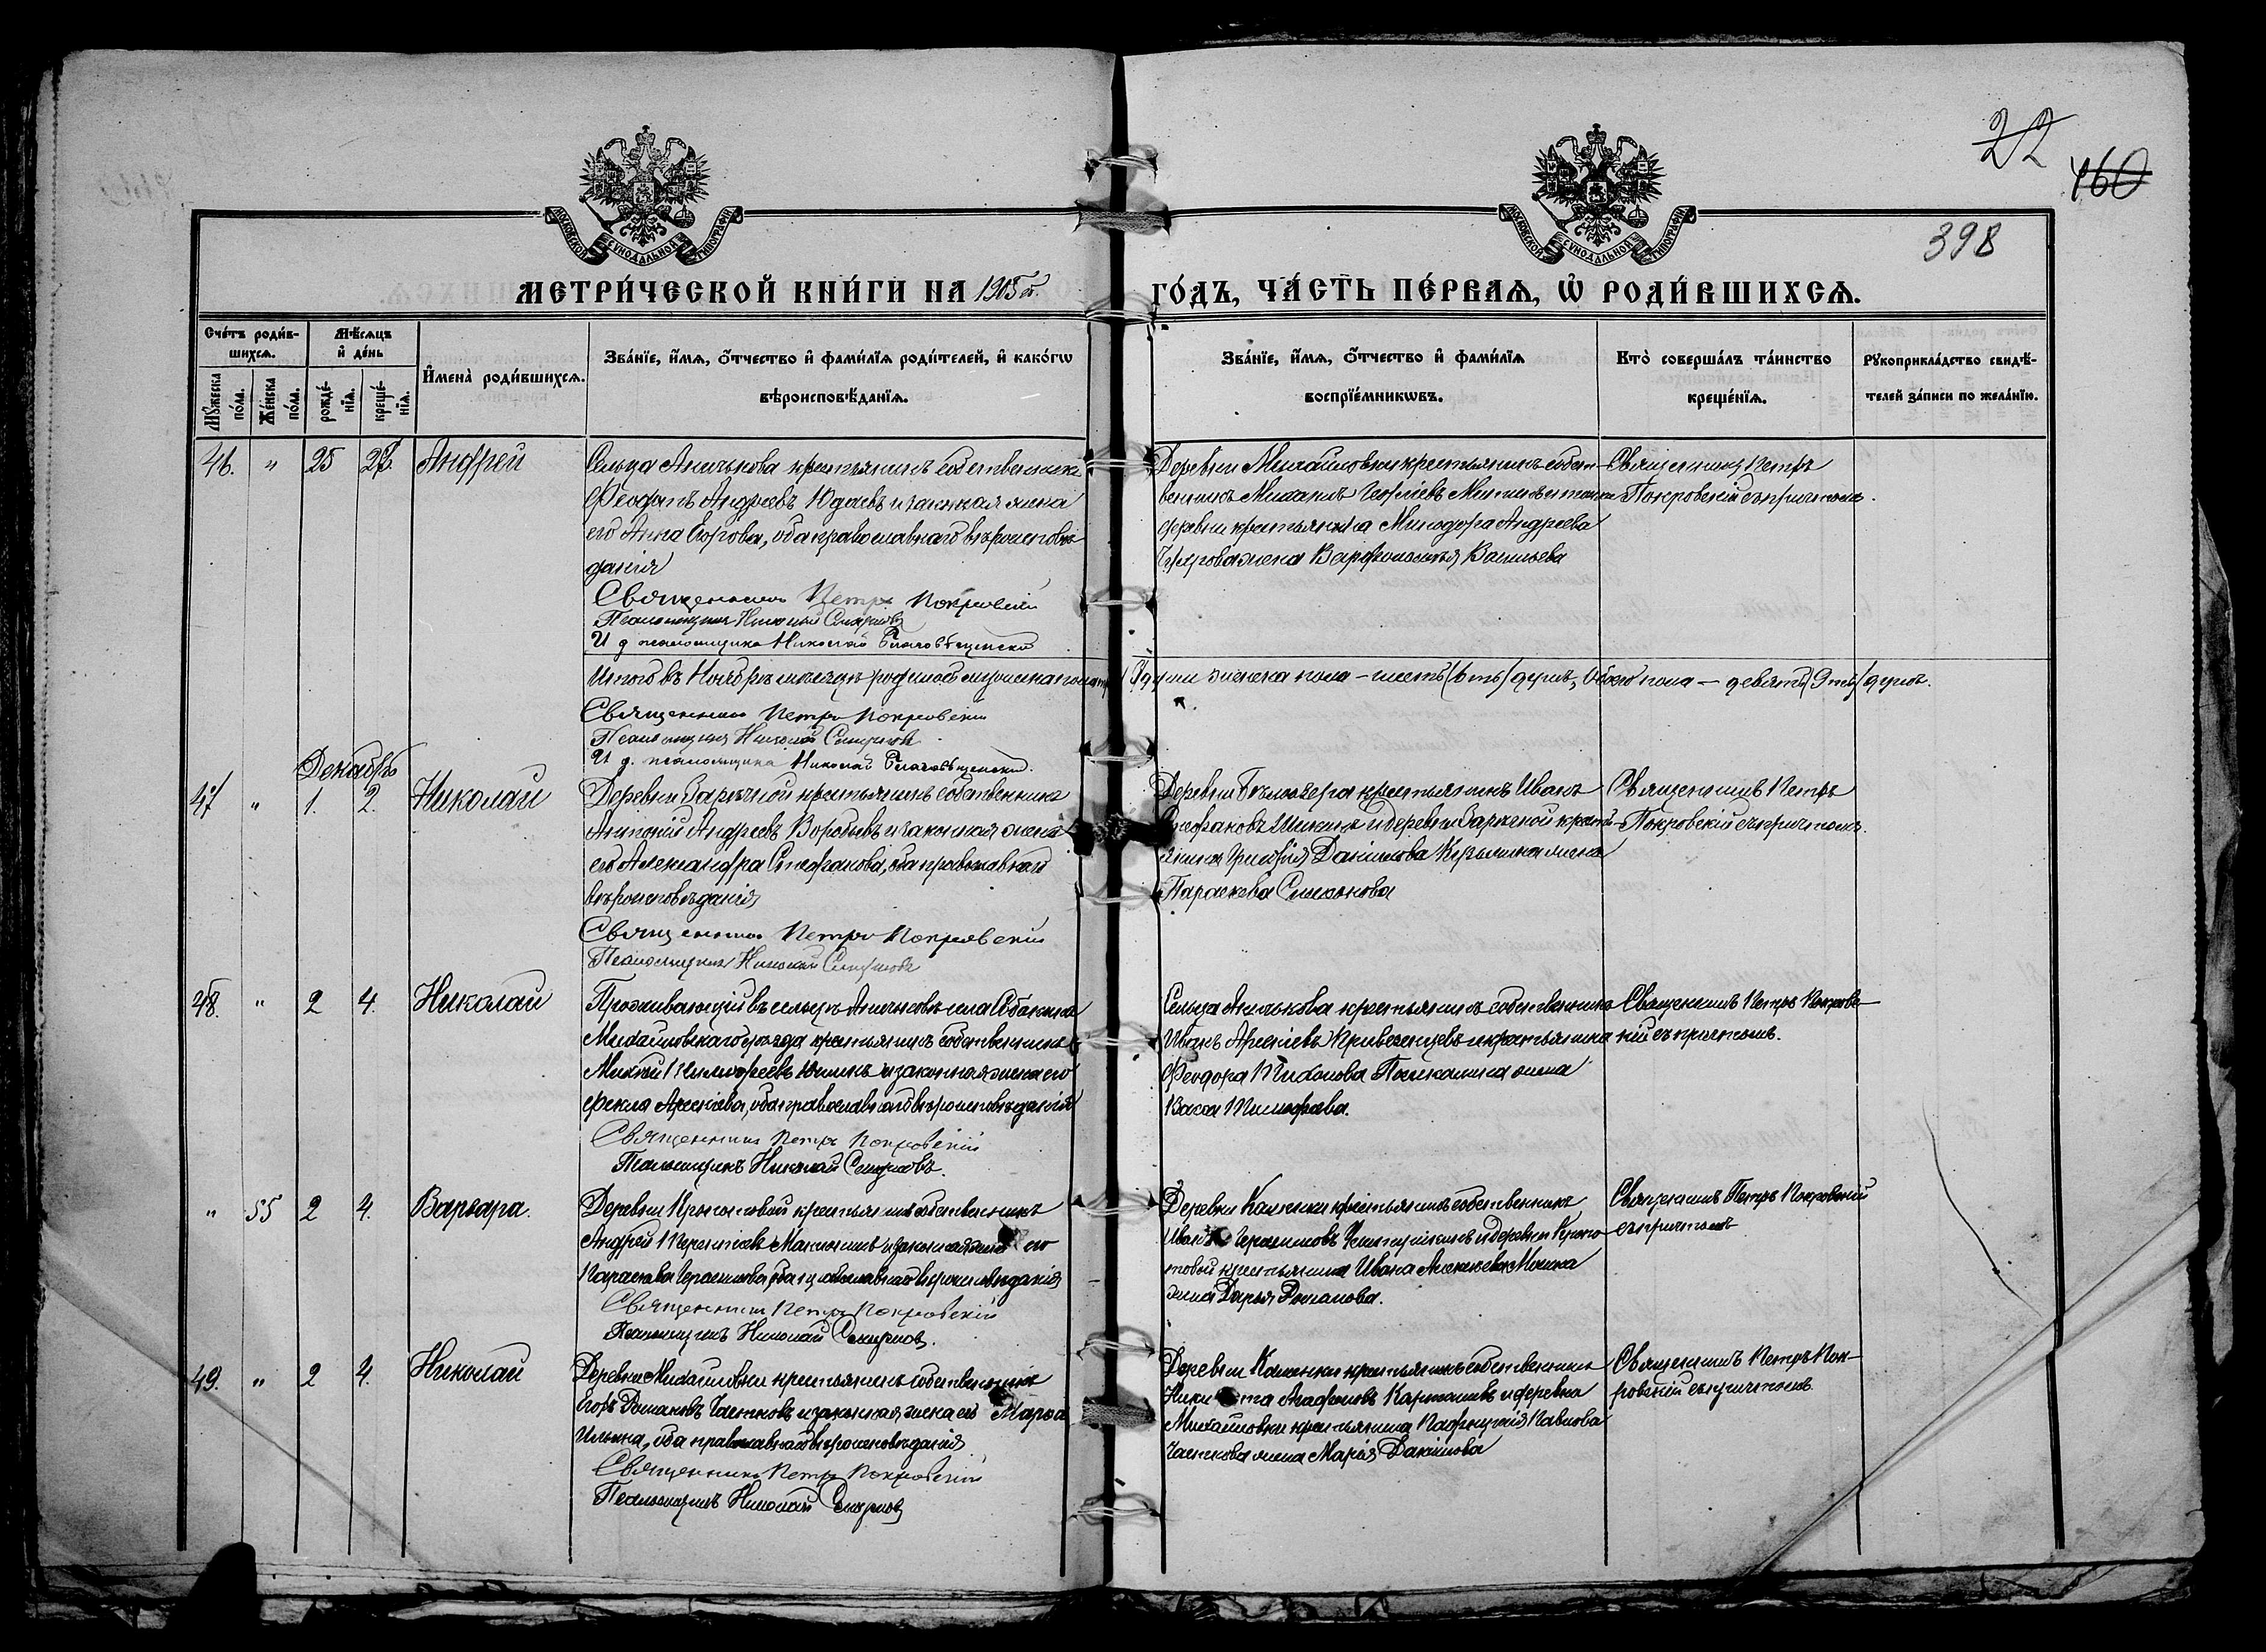 22
460
398
МОСКОВСКОЙ СѴНОДАЛЬНОЙ ТИПОГРАФІИ
МОСКОВСКОЙ СѴНОДАЛЬНОЙ ТИПОГРАФІИ
МЕТРИ́ЧЕСКОЙ КНИ́ГИ НА 1905 г. ГО́ДЪ, ЧА́СТЬ ПЕ́РВАѦ, Ѽ РОДИ́ВШИХСѦ.
Сче́тъ роди́в-
шихсѧ.
Мꙋ́жеска по́ла.
Же́нска по́ла.
Мѣ́сѧцъ
и҆ де́нь
рожде́-
нїѧ.
креще́-
нїѧ.
И҆мена̀ роди́вшихсѧ.
Зва́нїе, и҆́мѧ, ѻ҆́тчество и҆ фами́лїѧ роди́телей, и҆ како́гѡ
вѣроисповѣ́данїѧ.
Зва́нїе, и҆́мѧ, ѻ҆́тчество и҆ фами́лїѧ
воспрїе́мникѡвъ.
Кто̀ соверша́лъ та́инство
креще́нїѧ.
Рꙋкоприкла́дство свидѣ́-
телей за́писи по жела́нїю.
46. " 25 28. Андрей
Сельца Аничкова крестьянинъ собственникъ
Феофанъ Андреевъ Юдаевъ и законная жена
его Анна Егорова, оба православнаго вѣроисповѣ
данія
Священникъ Петръ Покровскій
Псаломщикъ Николай Смирновъ
И д псаломщика Николай Благовѣщенскій
Деревни Михайловки крестьянинъ собст-
венникъ Михаилъ Георгіевъ и той же
деревни крестьянина Андреева
жена Васильева
Священникъ Петръ
Покровскій съ причтомъ.
Итого въ Ноябрѣ мѣсяцѣ родилось мужеска пола три (3) души женска пола — шесть (6ть) душъ, обоего пола — девять (9ть) душъ.
Священникъ Петръ Покровскій
Псаломщикъ Николай Смирновъ
И д. псаломщика Николай Благовѣщенскій.
Декабрь
47 " 1. 2. Николай
Деревни Зарѣчной крестьянинъ собственникъ
Антоній Андреевъ Воробьевъ и законная жена
его Александра Стефанова, оба православнаго
вѣроисповѣданія
Священникъ Петръ Покровскій
Псаломщикъ Николай Смирновъ
Деревни Бѣлоозера крестьянинъ Иванъ
Стефановъ Шикинъ и деревни Зарѣчной кресть-
янина Григорія Данилова жена
Параскева Симеонова
Священникъ Петръ
Покровскій съ причтомъ.
48. " 2 4. Николай
Проживающій въ сельцѣ Аничковѣ села Собакина
Михайловскаго уѣзда крестьянинъ собственникъ
Тимофеевъ и законная жена его
Фекла Арсеніева, оба православнаго вѣроисповѣданія
Священникъ Петръ Покровскій
Псаломщикъ Николай Смирновъ.
Сельца Аничкова крестьянинъ собственникъ
Иванъ Арсеніевъ Привезенцевъ и крестьянина
Феодора Тихонова жена
Васса Тимофеева.
Священникъ Петръ Покровс-
кій съ причтомъ.
" 55 2 4. Варвара.
Деревни Кропотовой крестьянинъ собственникъ
Андрей Терентьевъ и законная жена его
Параскева Герасимова, оба православнаго вѣроисповѣданія
Священникъ Петръ Покровскій
Псаломщикъ Николай Смирновъ.
Деревни Каменки крестьянинъ собственникъ
Иванъ Герасимовъ и деревни Кропо-
товой крестьянина Ивана Алексѣева
жена Дарья Романова.
Священникъ Петръ Покровскій
съ причтомъ
49. " 2 4. Николай
Деревни Михайловки крестьянинъ собственникъ
Егоръ Романовъ Чанчиковъ и законная жена его Марѳа
Ильина, оба православнаго вѣроисповѣданія
Священникъ Петръ Покровскій
Псаломщикъ Николай Смирновъ
Деревни Каменки крестьянинъ собственникъ
Никита Агафоновъ и деревни
Михайловки крестьянина Пафнутія Павлова
жена Марія Данилова
Священникъ Петръ Пок-
ровскій съ причтомъ.